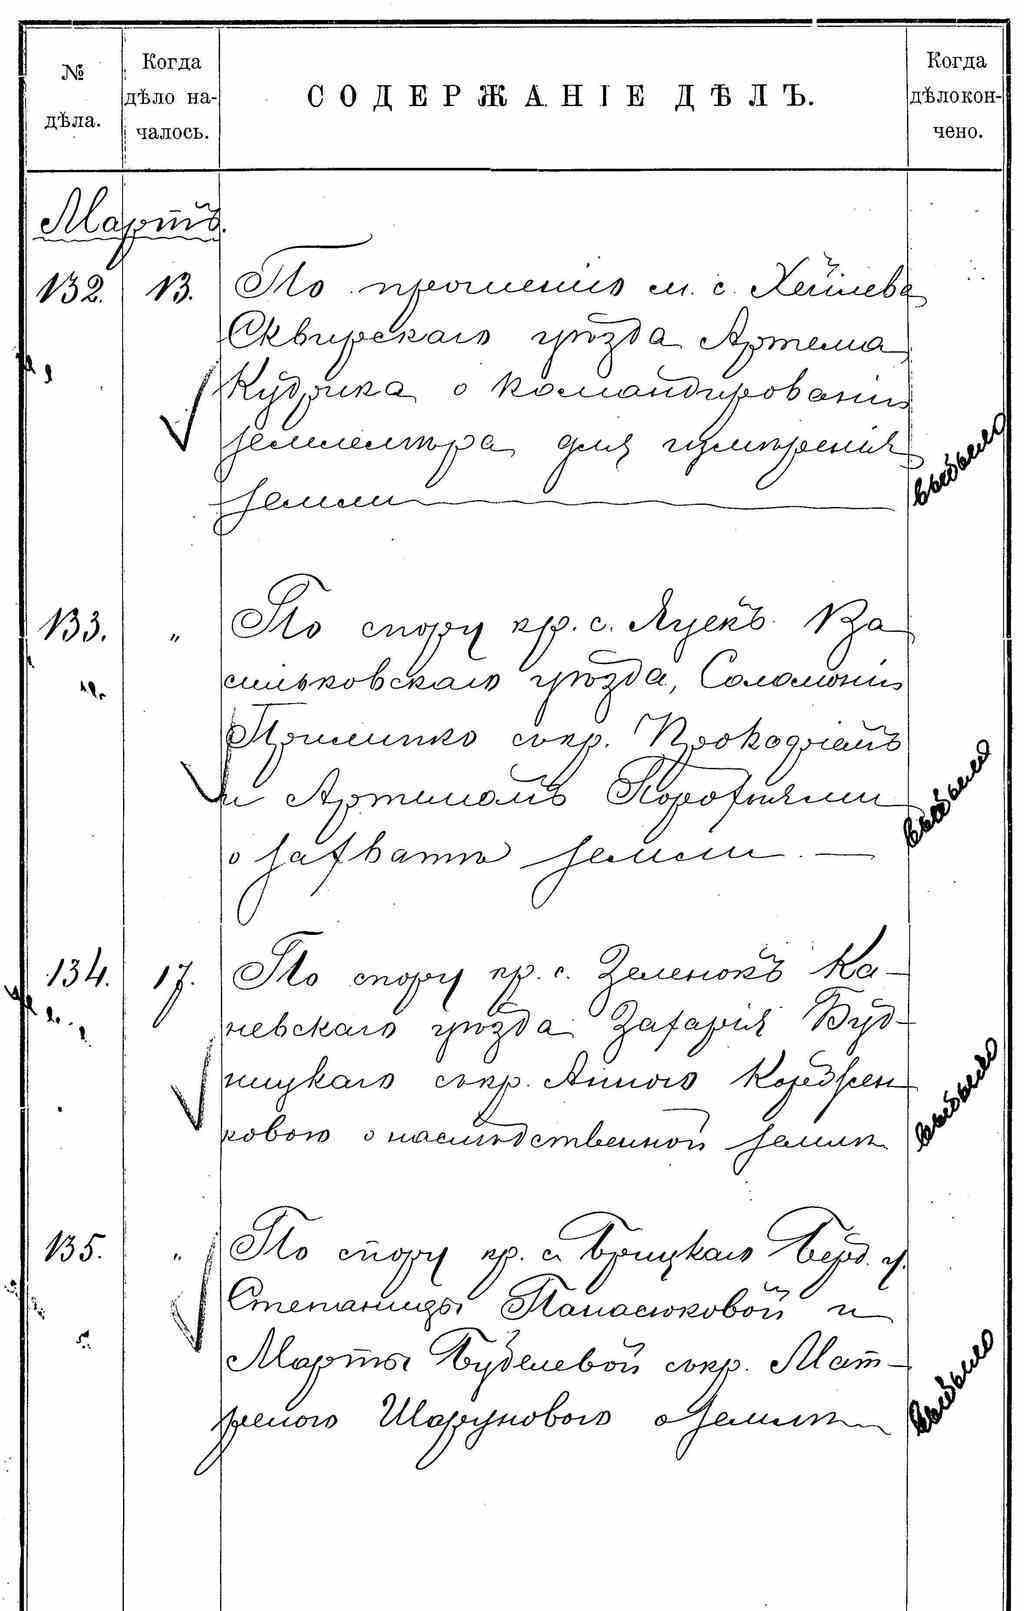 № дѣла.
Когда дѣло началось.
СОДЕРЖАНІЕ ДѢЛЪ.
Когда дѣло кончено.
Мартъ.
132. 13. По прошенію м. с.
Сквирскаго уѣзда Артема
Кудрика о командированіи
землемѣра для измѣренія
земли
выбыло
133. „ По спору кр. с. Яцекъ Ва
сильковскаго уѣзда, Соломоніи
Прилипко съ кр. Прокофіемъ
и Артемомъ
о захватѣ земли. —
выбыло
134. 17. По спору кр. с. Зеленокъ Ка–
невскаго уѣзда Захарія Буд–
ницкаго съ кр. Анною
ковою о наслѣдственной землѣ
выбыло
135. „ По спору кр. с. Брицкаго Берд. у.
Степаниды Панасюковой и
Марты Буделевой съ кр. Мат–
реною Шаруновою о землѣ
выбыло